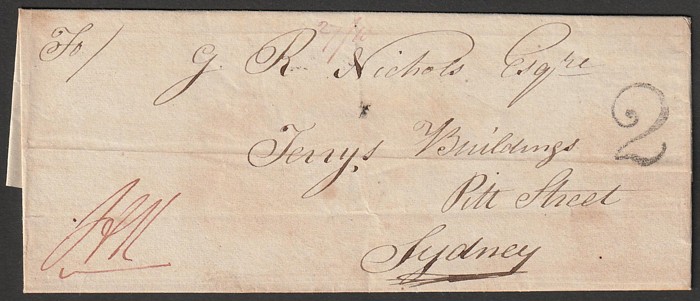 To/
G. R. Nichols Esqre
Terrys Buildings
Pitt Street
Sydney
2